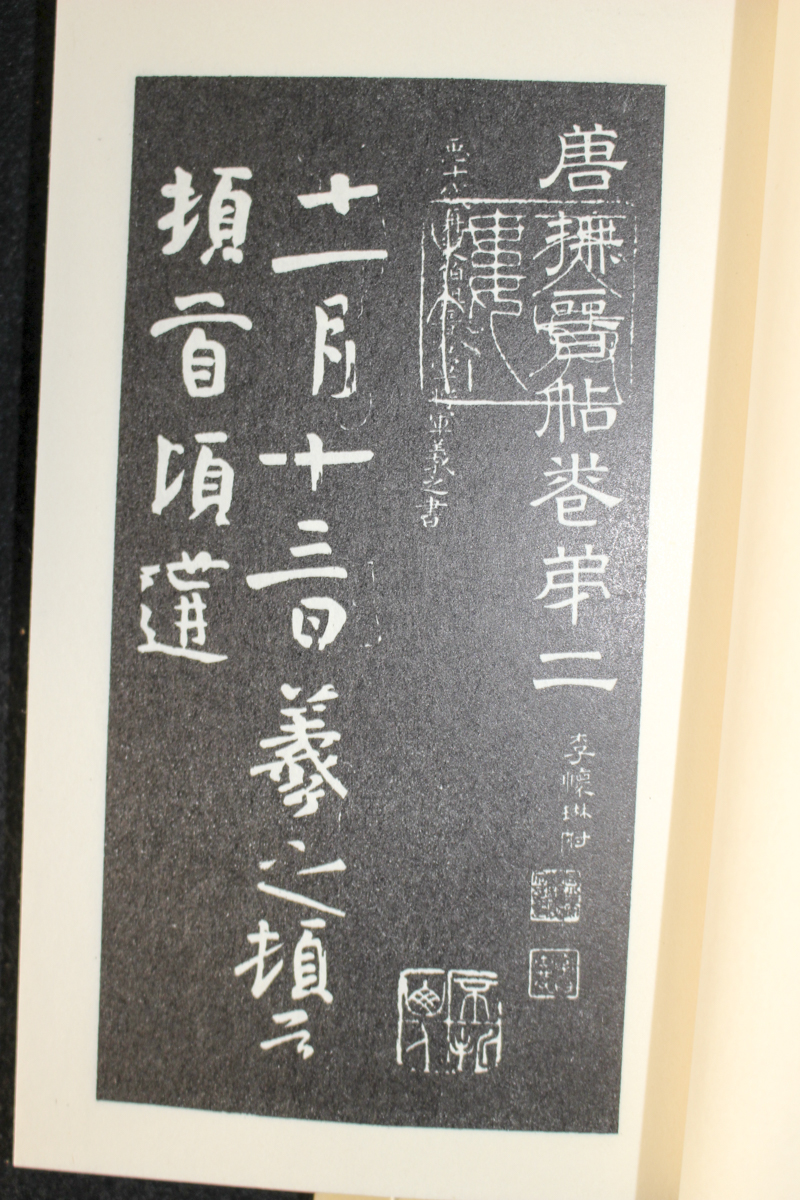 唐撫晉帖卷弟二
李懷琳附
軍羲之書
十一月十三日羲之頓首
頓首頃遘